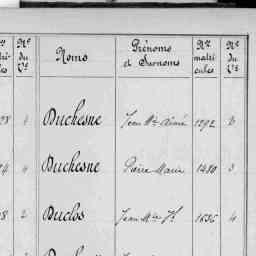 Nº du Vº Noms Prénoms et Surnoms Nºs matricules Nº du Vº
4 Duchesne Jean Mie Aimé 1292 2
4 Duchesne Pierre Marie 1480 3
2 Duclos Jean Mie Fs 1636 4